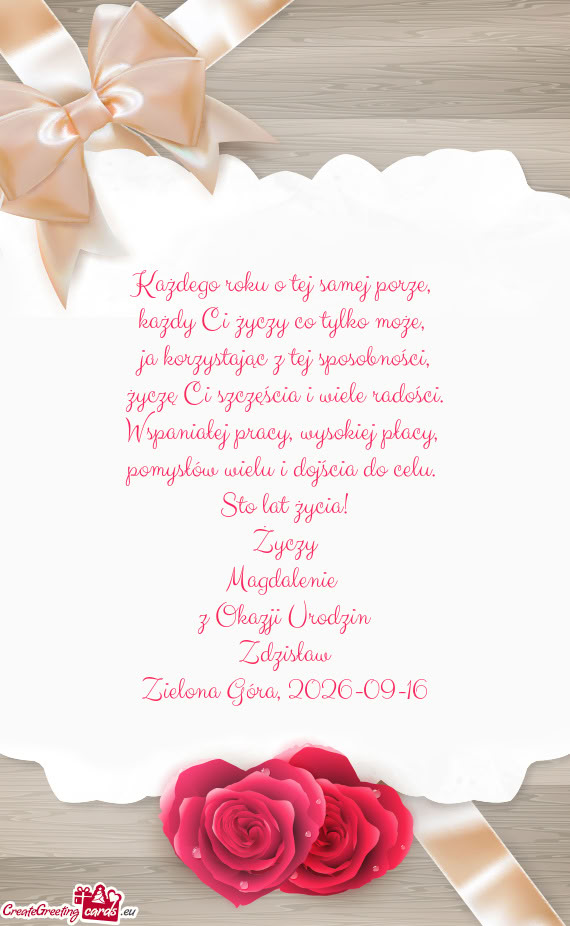 Każdego roku o tej samej porze,
każdy Ci życzy co tylko może,
ja korzystając z tej sposobności,
życzę Ci szczęścia i wiele radości.
Wspaniałej pracy, wysokiej płacy,
pomysłów wielu i dojścia do celu.
Sto lat życia!
Życzy
Magdalenie
z Okazji Urodzin
Zdzisław
Zielona Góra, 2026-09-16
CreateGreeting cards .eu